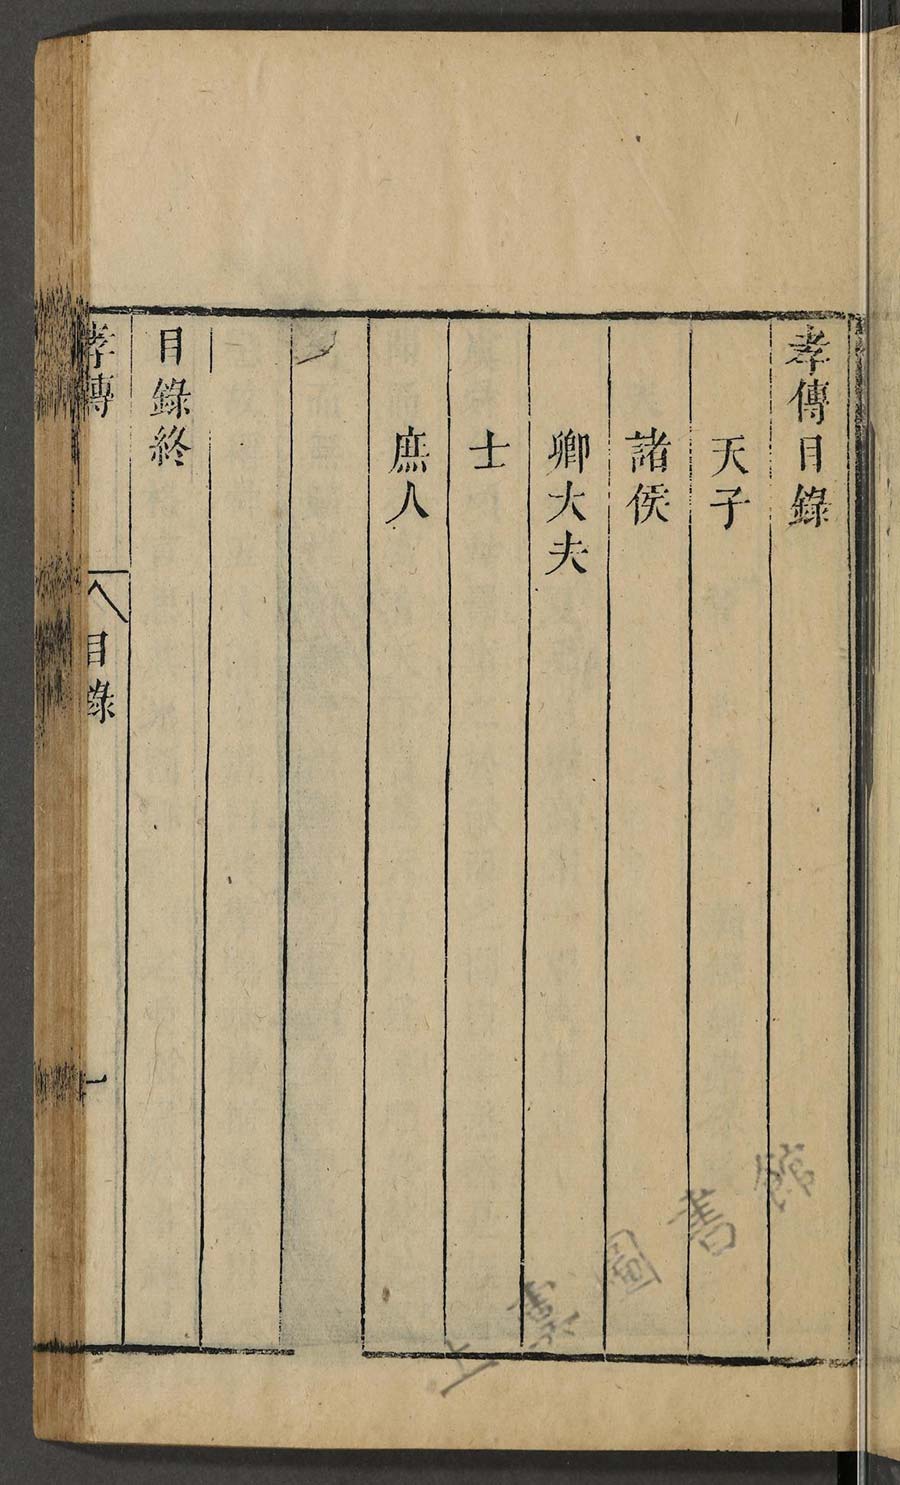 孝傳目錄
天子
諸侯
卿大夫
士
庶人
目錄終
孝傳
目錄
一
上
圖書館